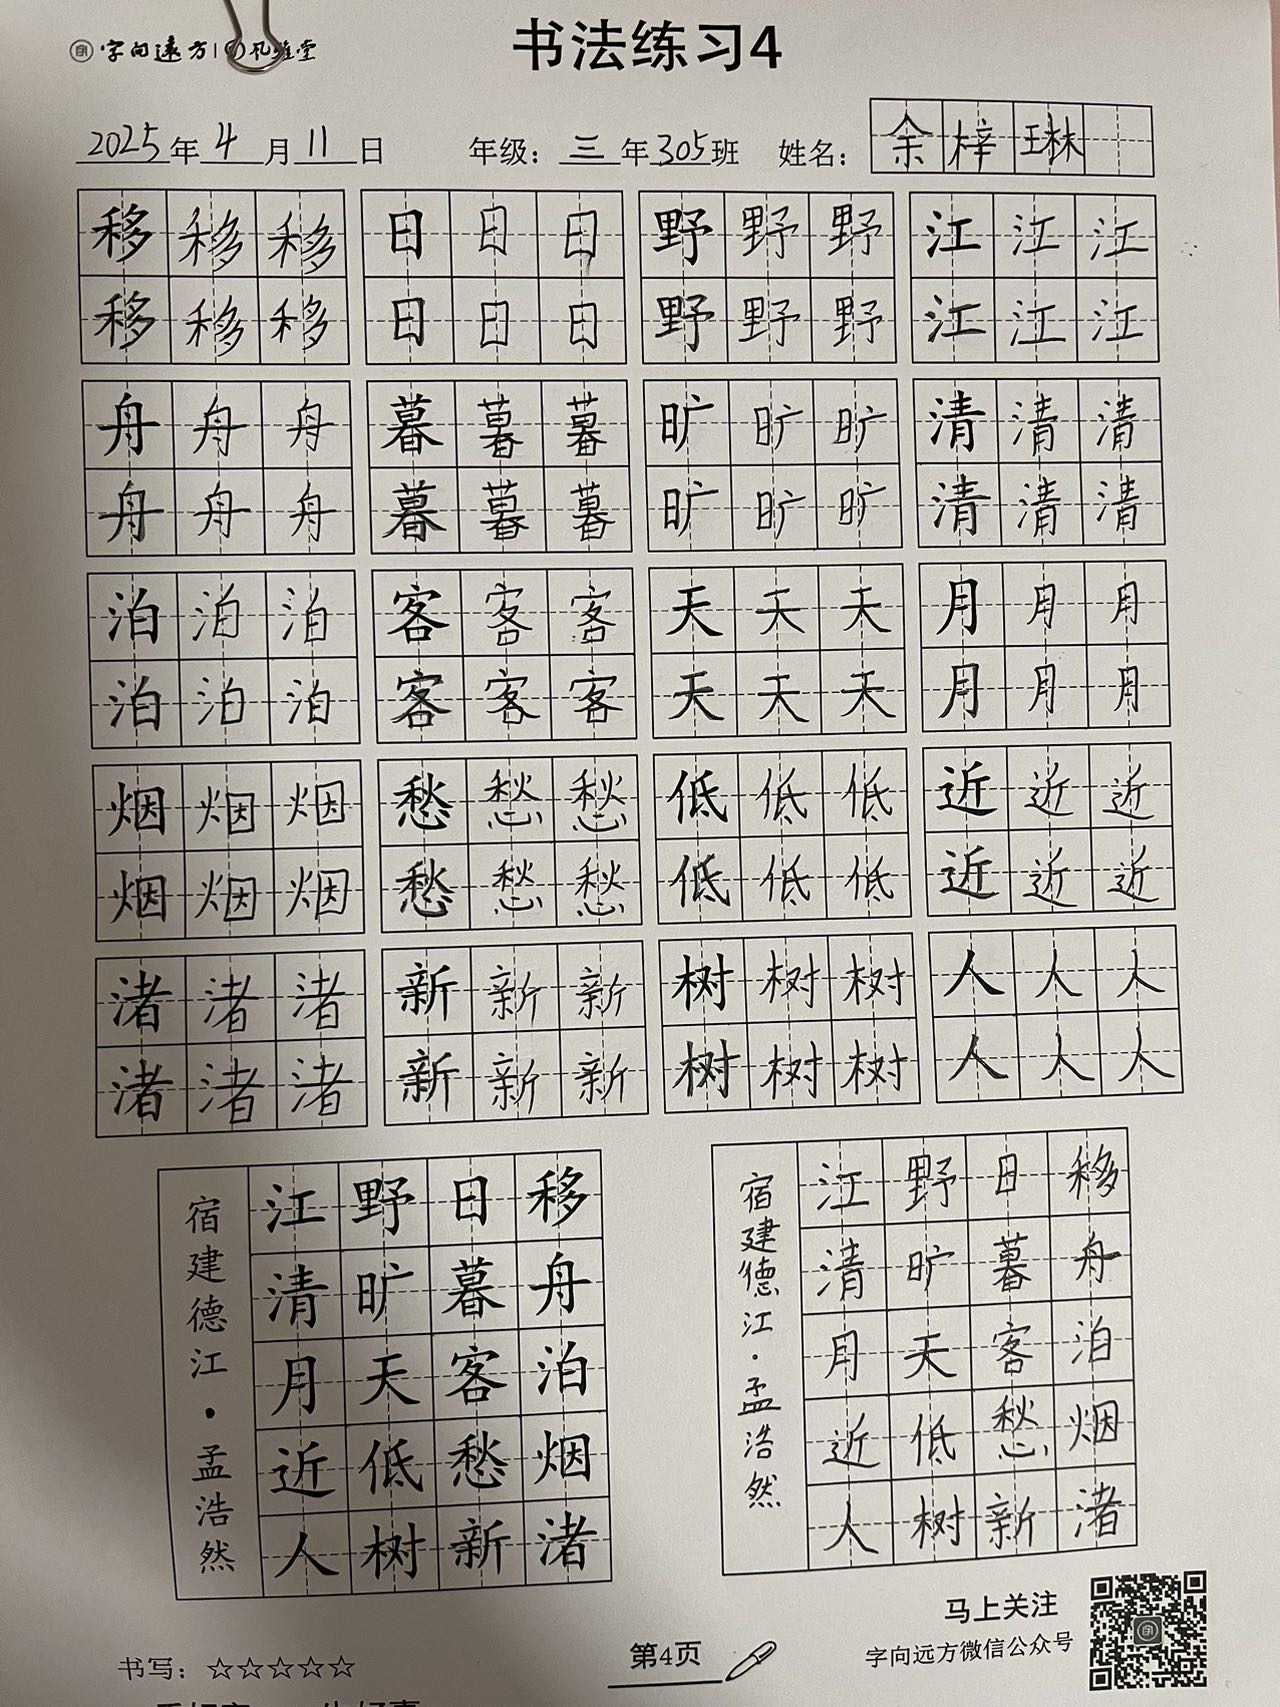 字向远方 | 孔雀堂
书法练习4
2025年4月11日 年级：三年305班 姓名：余梓琳
移移移 日日日 野野野 江江江
移移移 日日日 野野野 江江江
舟舟舟 暮暮暮 旷旷旷 清清清
舟舟舟 暮暮暮 旷旷旷 清清清
泊泊泊 客客客 天天天 月月月
泊泊泊 客客客 天天天 月月月
烟烟烟 愁愁愁 低低低 近近近
烟烟烟 愁愁愁 低低低 近近近
渚渚渚 新新新 树树树 人人人
渚渚渚 新新新 树树树 人人人
移舟泊烟渚
日暮客愁新
野旷天低树
江清月近人
宿建德江·孟浩然
移舟泊烟渚
日暮客愁新
野旷天低树
江清月近人
宿建德江·孟浩然
马上关注
字向远方微信公众号
书写：☆☆☆☆☆
第4页